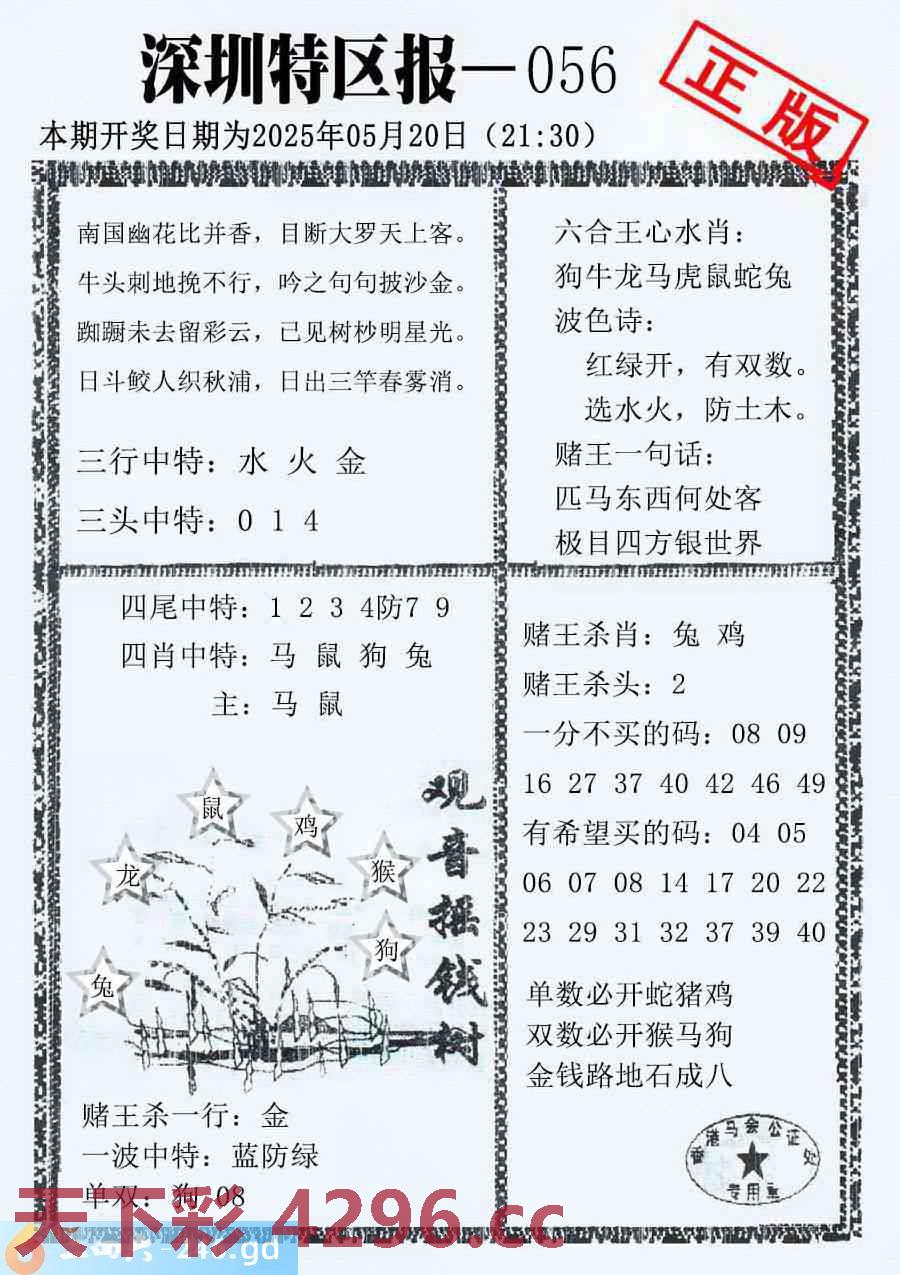 深圳特区报—056
正版
本期开奖日期为2025年05月20日（21:30）
南国幽花比并香，目断大罗天上客。
牛头刺地挽不行，吟之句句披沙金。
踟蹰未去留彩云，已见树杪明星光。
日斗鲛人织秋浦，日出三竿春雾消。
三行中特：水 火 金
三头中特：0 1 4
六合王心水肖：
狗牛龙马虎鼠蛇兔
波色诗：
红绿开，有双数。
选水火，防土木。
赌王一句话：
匹马东西何处客
极目四方银世界
四尾中特：1 2 3 4防7 9
四肖中特：马 鼠 狗 兔
主：马 鼠
鼠
鸡
龙
猴
狗
兔
观音摇钱树
赌王杀一行：金
一波中特：蓝防绿
单双：狗 08
赌王杀肖：兔 鸡
赌王杀头：2
一分不买的码：08 09
16 27 37 40 42 46 49
有希望买的码：04 05
06 07 08 14 17 20 22
23 29 31 32 37 39 40
单数必开蛇猪鸡
双数必开猴马狗
金钱路地石成八
香港马会公证处
专用章
天下彩 4296.cc